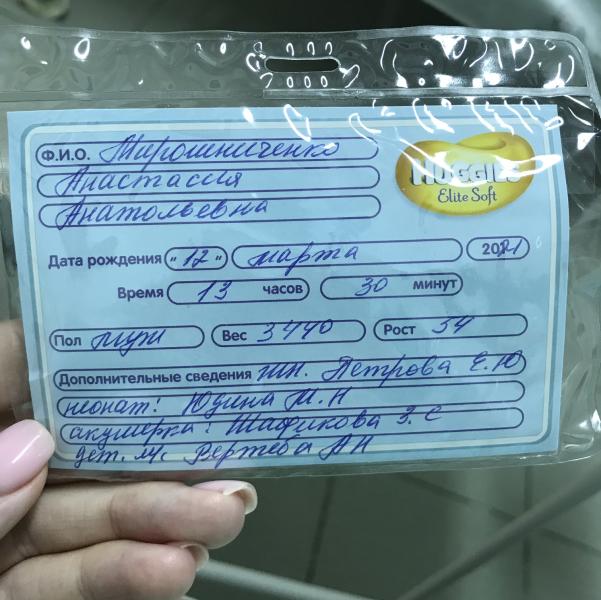 HUGGIES
Elite Soft
Ф.И.О. Мирошниченко
Анастасия
Анатольевна
Дата рождения "12" марта 2021
Время 13 часов 30 минут
Пол муж Вес 3440 Рост 54
Дополнительные сведения Петрова Е.Ю
неонат: Юдина М.Н
акушерка: Шафикова З.С
дет. м/с Вертеба АН